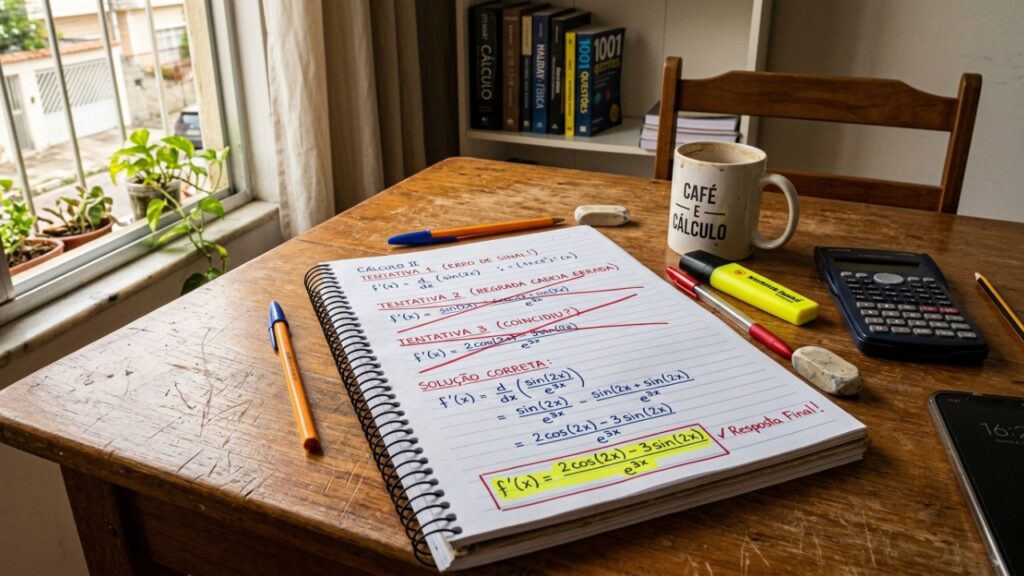 CÁLCULO
HALLIDAY FÍSICA
1001 QUESTÕES
1001 QUESTÕES
CAFÉ
E
CÁLCULO
CÁLCULO II
TENTATIVA 1 (ERRO DE SINAL!)
f'(x) = d/dx (sin(2x)
TENTATIVA 2 (REGRADA CADEIA ERRADA)
f'(x) =
e^{3x}
TENTATIVA 3 (COINCIDIU?)
f'(x) = 2cos(2x) - 3sin(2x) / e^{3x}
SOLUÇÃO CORRETA:
f'(x) = d/dx (sin(2x) / e^{3x})
= sin(2x) / e^{3x} - sin(2x + sin(2x) / e^{3x}
= 2cos(2x) - 3sin(2x) / e^{3x}
f'(x) = 2cos(2x) - 3sin(2x) / e^{3x}
✓ Resposta Final!